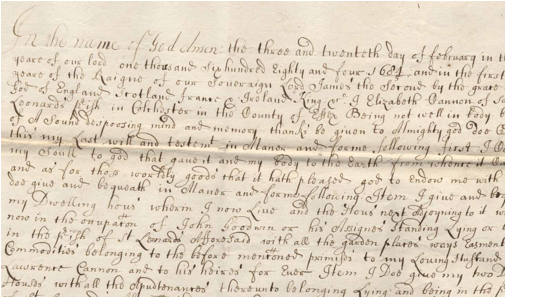 In the name of God Amen the three and twenteth day of februarij in th
yeare of our lord one thousand Six hundred Eighty and four 1684 and in the first
yeare of the Raigne of our Soveraign Lord James the Second by the grace
God of England Scotland france & Ireland King &c I Elizabeth Cannon of S
Leonards Pish in Colchester in the County of Essex Being not well in body b
of A Sound desposing mind and memory thanks be given to Almighty god Doe
this my Last will and testem in Maner and forme following first I
my Soull to god that gave it and my body to the Earth from whence it
and as for those worldly goods that it hath pleased god to Endow me with
doe give and bequeath in Maner and forme following Item I give and be
my Dwelling hous wherin I now Live and the Hous next Adjoyning to it
now in the occupation of John Goodwin or his Assignes Standing Lying or
in the Pish of St Leonards Afforesaid with all the garden places ways Easment
Commodities belonging to the before mentoned primises to my Loving Husband
Lawrence Cannon and to his heires for Ever Item I Doe give my two
Houses with all the Apurtenances thereunto belonging Lying and being in the